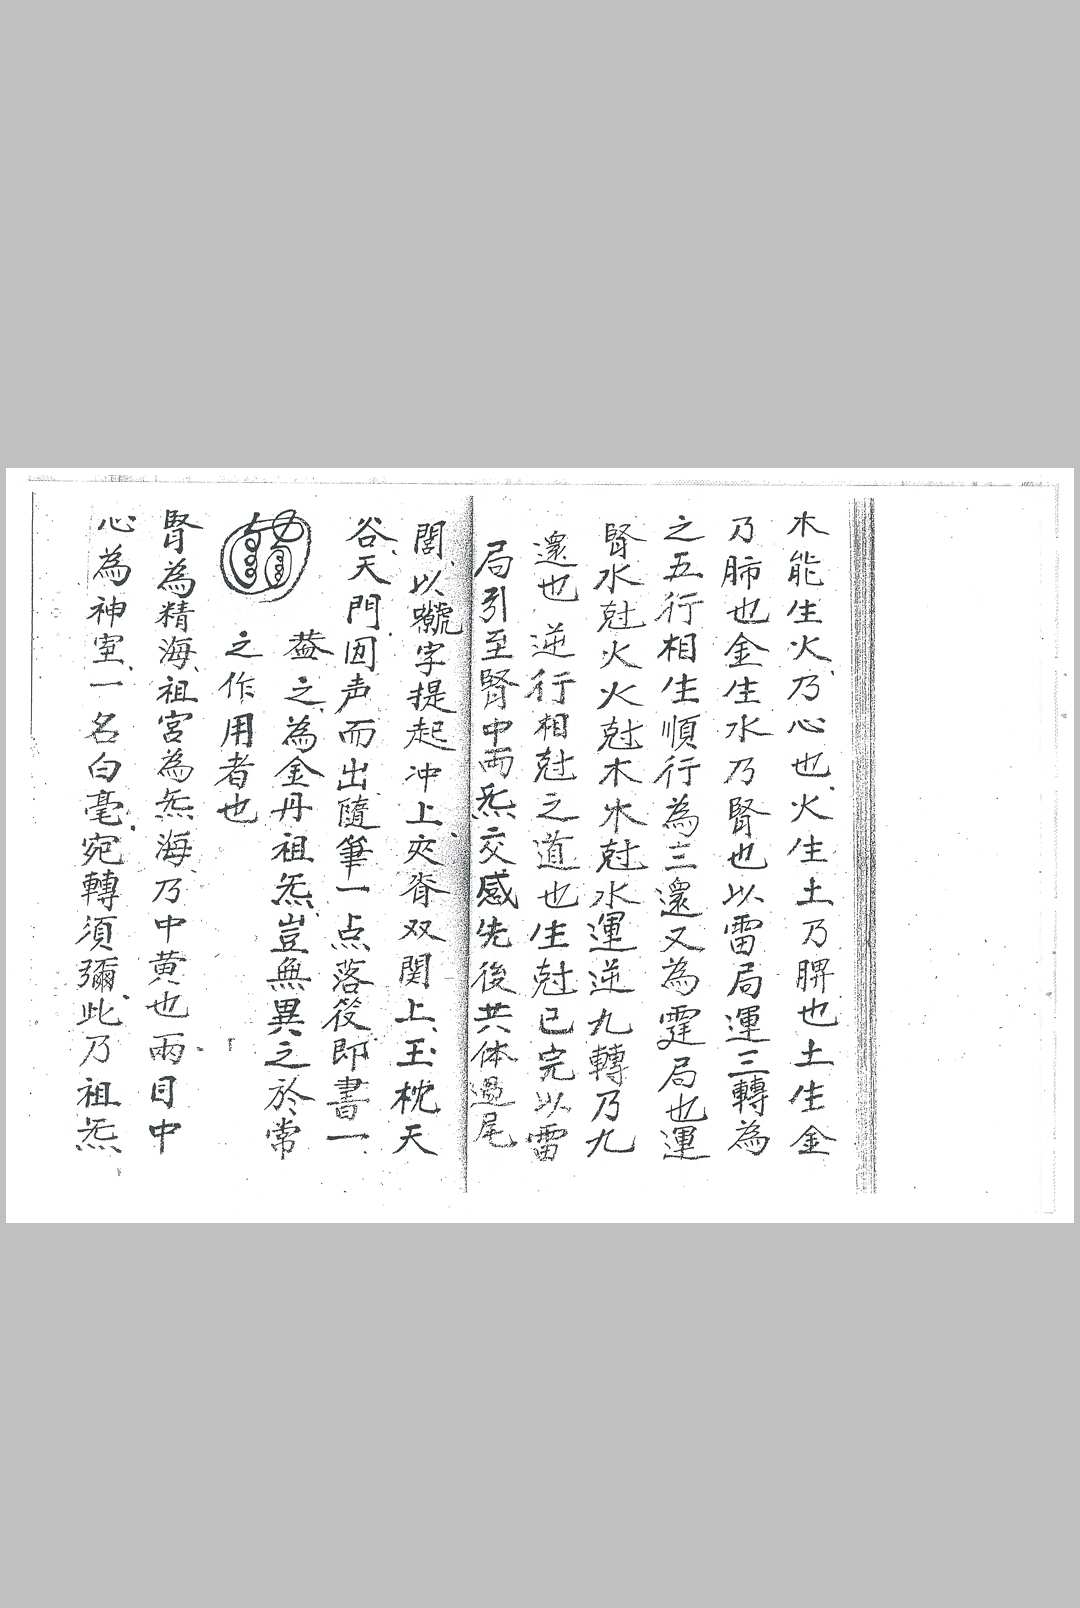 木能生火、乃心也、火生土乃脾也土生金
乃肺也金生水乃腎也以雷局運三轉為
之五行相生順行為三還又為霆局也運
腎水尅火火尅木木尅水運逆九轉乃九
還也逆行相尅之道也生尅已完以雷
局引至腎中兩炁交感先後共体過尾
閭、以字提起冲上、夾脊双関上、玉枕天
谷、天門因声而出隨筆一点落筊即書一
盖之、為金丹祖炁、豈無異之於常
之作用者也
腎為精海、祖宮為炁海、乃中黄也兩目中
心為神室、一名白毫、宛轉須彌、此乃祖炁